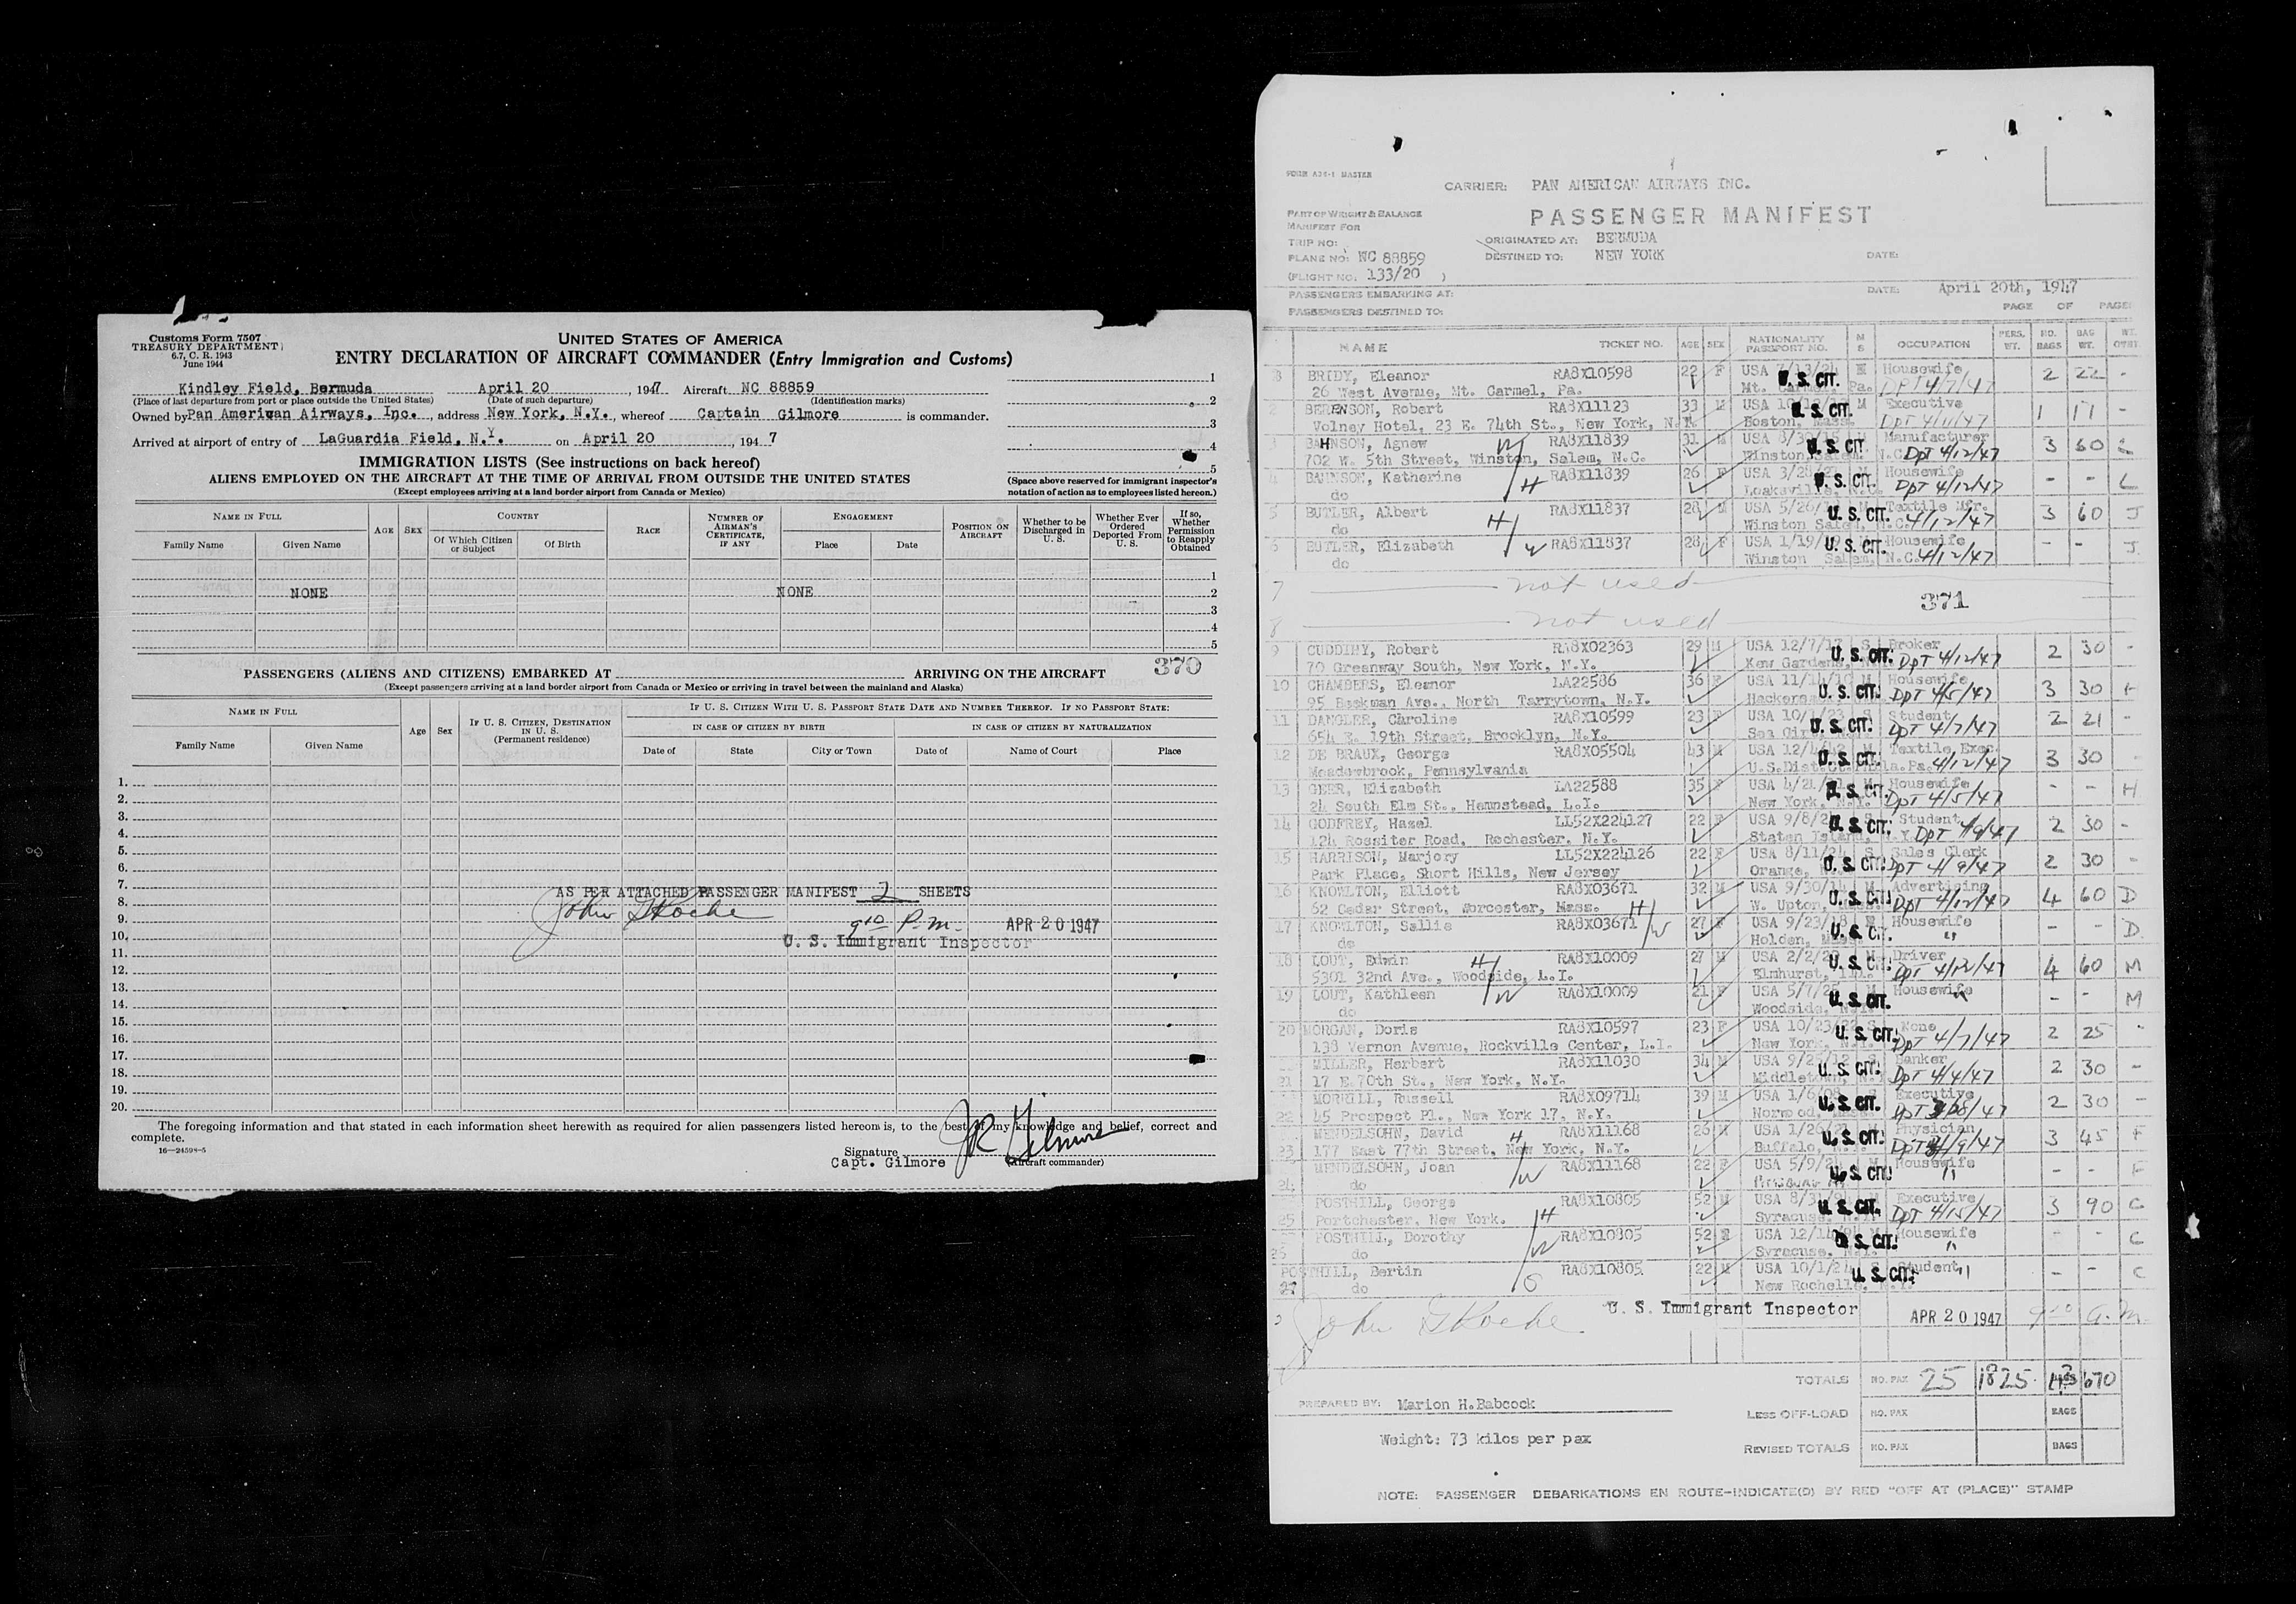 Customs Form 7507
TREASURY DEPARTMENT
6.7, C. R. 1943
June 1944
UNITED STATES OF AMERICA
ENTRY DECLARATION OF AIRCRAFT COMMANDER (Entry Immigration and Customs)
Kindley Field, Bermuda April 20, 1947 Aircraft NC 88859
(Place of last departure from port or place outside the United States) (Date of such departure) (Identification marks)
Owned by Pan American Airways, Inc., address New York, N.Y., whereof Captain Gilmore is commander.
Arrived at airport of entry of LaGuardia Field, N.Y. on April 20, 1947
1
2
3
4
5
(Space above reserved for immigrant inspector's notation of action as to employees listed hereon.)
IMMIGRATION LISTS (See instructions on back hereof)
ALIENS EMPLOYED ON THE AIRCRAFT AT THE TIME OF ARRIVAL FROM OUTSIDE THE UNITED STATES
(Except employees arriving at a land border airport from Canada or Mexico)
NAME IN FULL AGE SEX COUNTRY RACE NUMBER OF AIRMAN'S CERTIFICATE, IF ANY ENGAGEMENT POSITION ON AIRCRAFT Whether to be Discharged in U. S. Whether Ever Ordered Deported From U. S. If so, Whether Permission to Reapply Obtained
Family Name Given Name Of Which Citizen or Subject Of Birth Place Date
1
NONE NONE 2
3
4
5
370
PASSENGERS (ALIENS AND CITIZENS) EMBARKED AT ARRIVING ON THE AIRCRAFT
(Except passengers arriving at a land border airport from Canada or Mexico or arriving in travel between the mainland and Alaska)
NAME IN FULL Age Sex IF U. S. CITIZEN, DESTINATION IN U. S. (Permanent residence) IF U. S. CITIZEN WITH U. S. PASSPORT STATE DATE AND NUMBER THEREOF. IF NO PASSPORT STATE:
IN CASE OF CITIZEN BY BIRTH IN CASE OF CITIZEN BY NATURALIZATION
Family Name Given Name Date of State City or Town Date of Name of Court Place
1.
2.
3.
4.
5.
6.
7.
AS PER ATTACHED PASSENGER MANIFEST 2 SHEETS
8.
John G Roche
9.
9 10 P.m. APR 20 1947
10.
U. S. Immigrant Inspector
11.
12.
13.
14.
15.
16.
17.
18.
19.
20.
The foregoing information and that stated in each information sheet herewith as required for alien passengers listed hereon is, to the best of my knowledge and belief, correct and complete.
16—24598-5
Signature JR Gilmore
Capt. Gilmore (Aircraft commander)
FORM A34-1 MASTER
CARRIER: PAN AMERICAN AIRWAYS INC.
PASSENGER MANIFEST
PART OF WEIGHT & BALANCE
MANIFEST FOR
TRIP NO: ORIGINATED AT: BERMUDA
PLANE NO: NC 88859 DESTINED TO: NEW YORK DATE:
(FLIGHT NO. 133/20 )
PASSENGERS EMBARKING AT: DATE: April 20th, 1947
PASSENGERS DESTINED TO: PAGE OF PAGES
NAME TICKET NO. AGE SEX NATIONALITY PASSPORT NO. M S OCCUPATION PERS. WT. NO. BAGS BAG WT. WT. OVER
BRIDY, Eleanor RA8X10598 22 F USA U. S. CIT. Housewife 2 22 -
26 West Avenue, Mt. Carmel, Pa. Mt. Carmel, Pa. DPT 4/7/47
2 BERENSON, Robert RA8X11123 33 M USA U. S. CIT. M Executive 1 17 -
Volney Hotel, 23 E. 74th St., New York, N.Y. Boston, Mass. DPT 4/11/47
BAHNSON, Agnew W RA8X11839 31 M USA U. S. CIT. Manufacturer 3 60
702 W. 5th Street, Winston, Salem, N.C. Winston Salem, N.C. DPT 4/12/47
4 BAHNSON, Katherine H RA8X11839 26 F USA U. S. CIT. Housewife - - L
do DPT 4/12/47
5 BUTLER, Albert H RA8X11837 28 M USA U. S. CIT. Textile Mfr. 3 60 J
do Winston Salem, N.C. 4/12/47
6 BUTLER, Elizabeth W RA8X11837 28 F USA 1/19/ U. S. CIT. Housewife - - J
do Winston Salem, N.C. 4/12/47
7 not used
371
8 not used
9 CUDDIHY, Robert RA8X02363 29 M USA 12/7/17 S U. S. CIT. Broker 2 30 -
70 Greenway South, New York, N.Y. Kew Gardens, DPT 4/12/47
10 CHAMBERS, Eleanor LA22586 36 F USA 11/14/10 M U. S. CIT. Housewife 3 30 H
95 Beekman Ave., North Tarrytown, N.Y. DPT 4/5/47
11 DANGLER, Caroline RA8X10599 23 F USA U. S. CIT. Student 2 21 -
654 E. 19th Street, Brooklyn, N.Y. Sea Girt, DPT 4/7/47
12 DE BRAUX, George RA8X05504 43 M USA U. S. CIT. Textile Exec. 3 30 -
Meadowbrook, Pennsylvania Phila. Pa. 4/12/47
13 GEER, Elizabeth LA22588 35 F USA 4/21/ U. S. CIT. Housewife - - H
24 South Elm St., Hempstead, L.I. New York, N.Y. DPT 4/5/47
14 GODFREY, Hazel LL52X224127 22 F USA 9/8/24 U. S. CIT. Student 2 30 -
124 Rossiter Road, Rochester, N.Y. Staten Island, N.Y. DPT 4/9/47
15 HARRISON, Marjory LL52X224126 22 F USA 8/11/24 S U. S. CIT. Sales Clerk 2 30 -
Park Place, Short Hills, New Jersey Orange, DPT 4/9/47
16 KNOWLTON, Elliott RA8X03671 32 M USA 9/30/14 M U. S. CIT. Advertising 4 60 D
62 Cedar Street, Worcester, Mass. H W. Upton, Mass. DPT 4/12/47
17 KNOWLTON, Sallie RA8X03671 W 27 F USA 9/23/18 M U. S. CIT. Housewife - - D
do Holden, Mass. "
18 LOUT, Edwin H RA8X10009 27 M USA 2/2/20 M U. S. CIT. Driver 4 60 M
5301 32nd Ave., Woodside, L.I. Elmhurst, L.I. DPT 4/12/47
19 LOUT, Kathleen W RA8X10009 21 F USA 5/7/25 M U. S. CIT. Housewife - - M
do Woodside, "
20 MORGAN, Doris RA8X10597 23 F USA 10/23/ U. S. CIT. None 2 25 -
138 Vernon Avenue, Rockville Center, L.I. New York, N.Y. DPT 4/7/47
MILLER, Herbert RA8X11030 34 M USA 9/25/12 S U. S. CIT. Banker 2 30 -
21 17 E. 70th St., New York, N.Y. Middletown, DPT 4/4/47
MORRILL, Russell RA8X09714 39 M USA 1/6/08 U. S. CIT. Executive 2 30 -
22 45 Prospect Pl., New York 17, N.Y. Norwood, Mass.
MENDELSOHN, David H RA8X11168 26 M USA 1/26/21 U. S. CIT. Physician 3 45 F
23 177 East 77th Street, New York, N.Y. Buffalo, N.Y.
MENDELSOHN, Joan W RA8X11168 22 F USA 5/9/24 U. S. CIT. Housewife - - F
24 do "
POSTHILL, George RA8X10805 52 M USA 8/31/94 U. S. CIT. Executive 3 90 C
25 Portchester, New York. H Syracuse, N.Y. DPT 4/15/47
POSTHILL, Dorothy W RA8X10805 52 F USA 12/14/94 M U. S. CIT. Housewife - - C
26 do Syracuse, N.Y. "
POSTHILL, Bertin RA8X10805 22 M USA 10/1/24 S U. S. CIT. Student " - - C
27 do S New Rochelle, N.Y.
John G Roche U. S. Immigrant Inspector APR 20 1947
TOTALS NO. PAX 25 1825 670
PREPARED BY: Marion H. Babcock LESS OFF-LOAD NO. PAX BAGS
Weight: 73 kilos per pax REVISED TOTALS NO. PAX BAGS
NOTE: PASSENGER DEBARKATIONS EN ROUTE-INDICATE(D) BY RED "OFF AT (PLACE)" STAMP